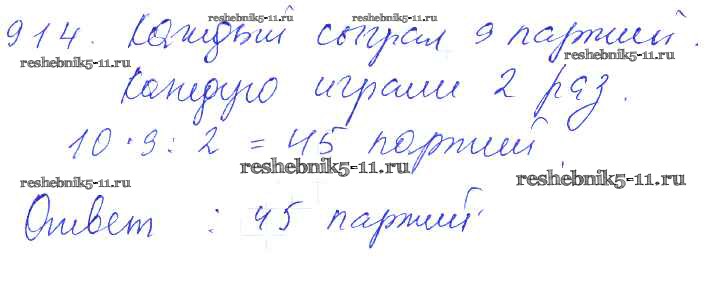 914. Каждый сыграл 9 партий.
reshebnik5-11.ru
reshebnik5-11.ru
reshebnik5-11.ru
Каждую играли 2 раз.
10 · 9 : 2 = 45 партий
reshebnik5-11.ru
reshebnik5-11.ru
reshebnik5-11.ru
Ответ : 45 партий
reshebnik5-11.ru
reshebnik5-11.ru